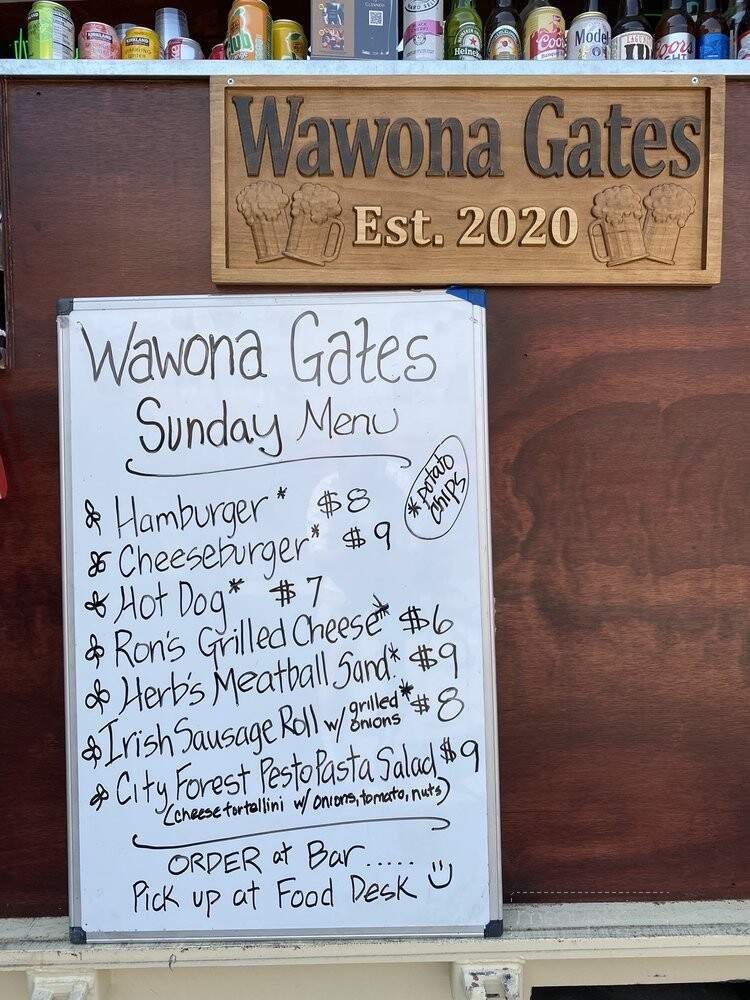 KIRKLAND
KIRKLAND
Heineken
Coors
Model
Coors
LIGHT
Wawona Gates
Est. 2020
Wawona Gates
Sunday Menu
* potato
chips
Hamburger* $8
Cheeseburger* $9
Hot Dog* $7
Ron's Grilled Cheese* $6
Herb's Meatball Sand.* $9
Irish Sausage Roll w/ grilled onions* $8
City Forest Pesto Pasta Salad $9
(cheese tortellini w/ onions, tomato, nuts)
ORDER at Bar.....
Pick up at Food Desk